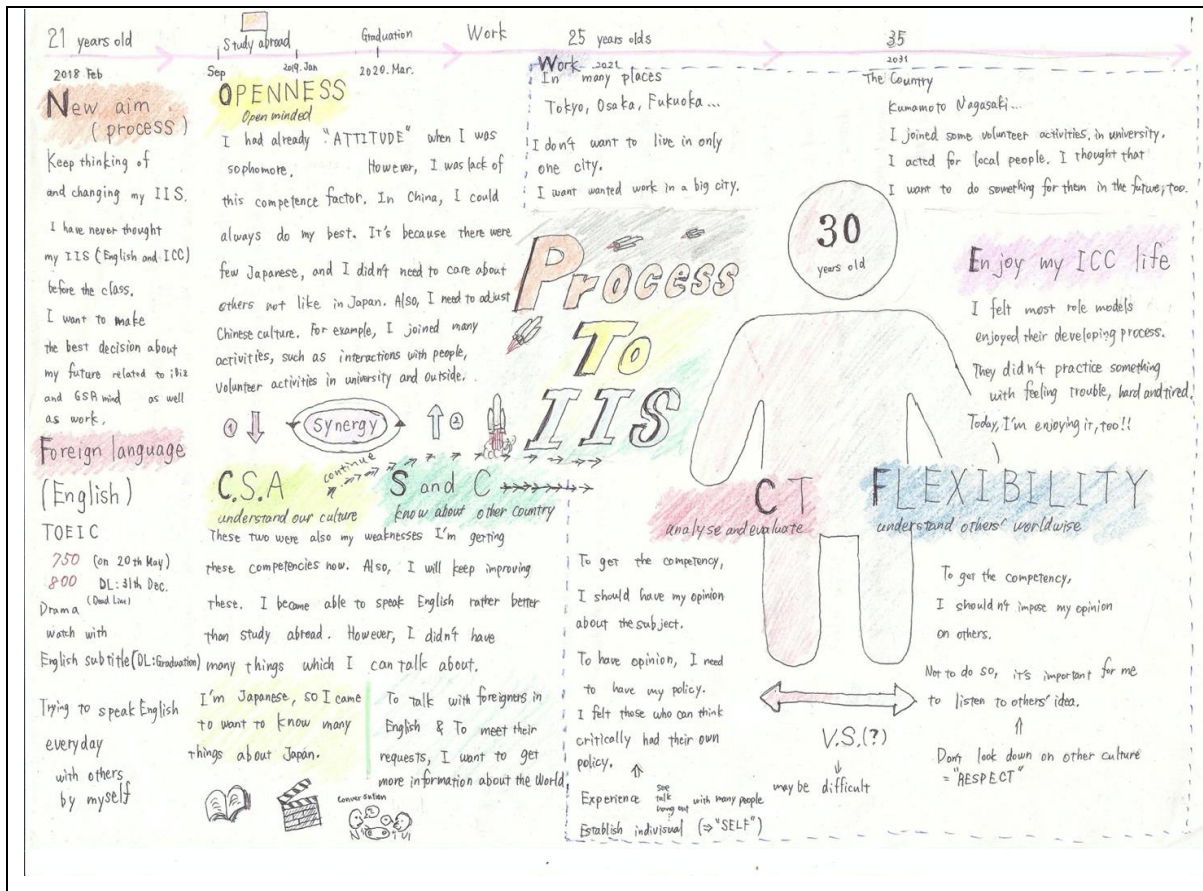 21 years old
Study abroad
Graduation
Work
25 years olds
35
2018 Feb
Sep
2019. Jan
2020. Mar.
2021
2031
New aim
(process)
Keep thinking of
and changing my IIS.
I have never thought
my IIS (English and ICC)
before the class.
I want to make
the best decision about
my future related to iBiz
and GSA mind as well
as work.
Foreign language
(English)
TOEIC
750 (on 20th May)
800 DL: 31th Dec.
(Dead Line)
Drama
watch with
English subtitle (DL: Graduation)
Trying to speak English
everyday
with others
by myself
OPENNESS
Open minded
I had already "ATTITUDE" when I was
sophomore. However, I was lack of
this competence factor. In China, I could
always do my best. It's because there were
few Japanese, and I didn't need to care about
others not like in Japan. Also, I need to adjust
Chinese culture. For example, I joined many
activities, such as interactions with people,
Volunteer activities in university and outside.
① Synergy ②
continue
C.S.A
understand our culture
S and C
know about other country
These two were also my weaknesses I'm getting
these competencies now. Also, I will keep improving
these. I became able to speak English rather better
than study abroad. However, I didn't have
many things which I can talk about.
I'm Japanese, so I came
to want to know many
things about Japan.
To talk with foreigners in
English & To meet their
requests, I want to get
more information about the World
conversation
Work
In many places
Tokyo, Osaka, Fukuoka...
I don't want to live in only
one city.
I want wanted work in a big city.
The Country
Kumamoto Nagasaki...
I joined some volunteer activities. in university.
I acted for local people. I thought that
I want to do something for them in the future, too.
Process
To
IIS
30
years old
Enjoy my ICC life
I felt most role models
enjoyed their developing process.
They didn't practice something
with feeling trouble, hard and tired.
Today, I'm enjoying it, too!!
CT
analyse and evaluate
To get the competency,
I should have my opinion
about the subject.
To have opinion, I need
to have my policy.
I felt those who can think
critically had their own
policy.
Experience see talk hang out with many people
Establish indivisual (⇒"SELF")
V.S.(?)
may be difficult
FLEXIBILITY
understand others' worldwise
To get the competency,
I shouldn't impose my opinion
on others.
Not to do so, it's important for me
to listen to others' idea.
Don't look down on other culture
= "RESPECT"